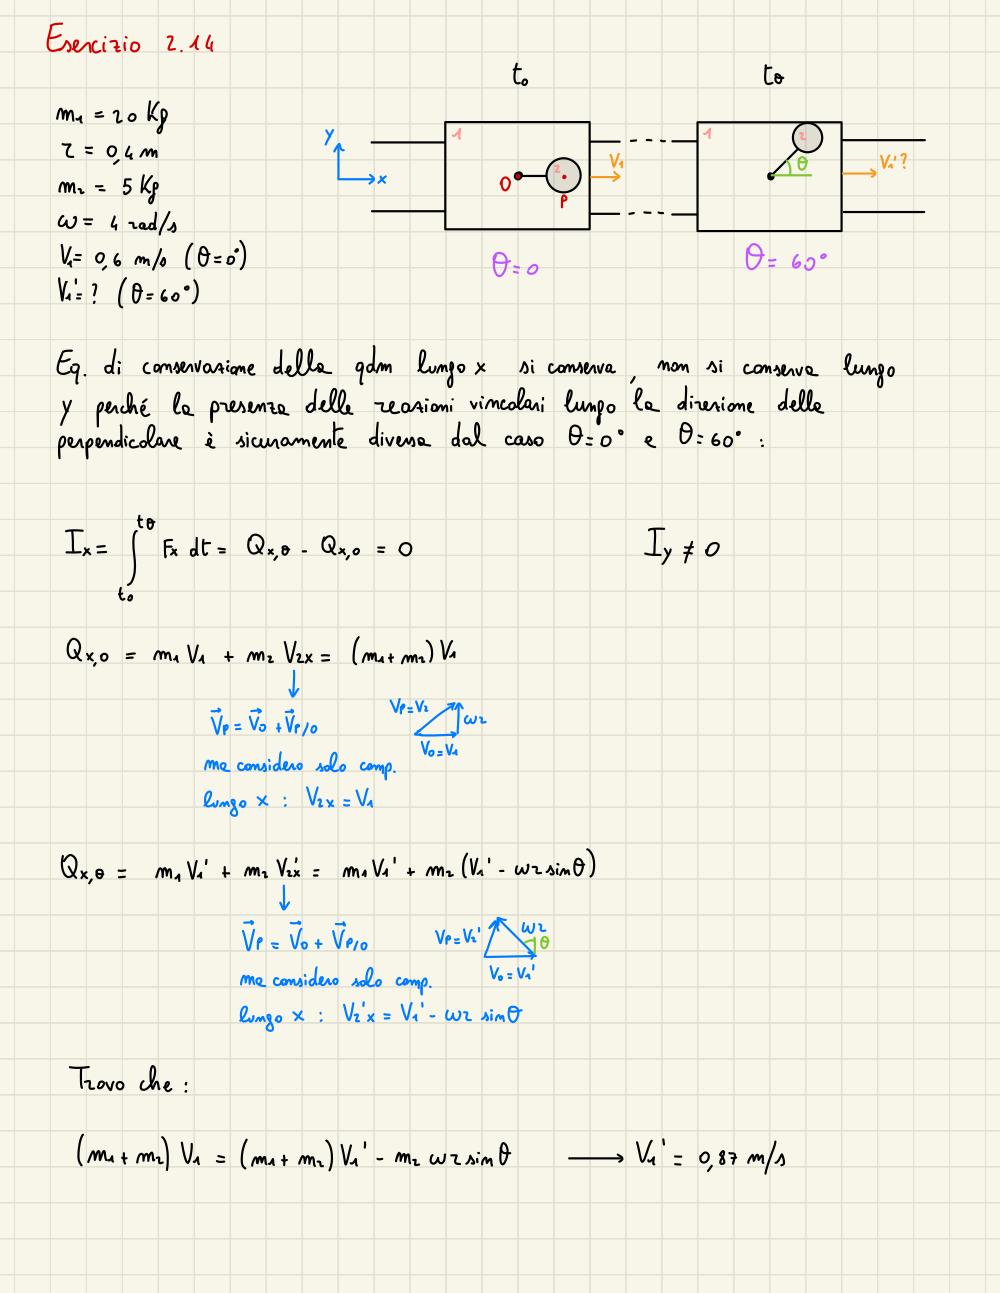 Esercizio 2.14
t₀ tθ
m₁ = 20 Kg
r = 0,4 m
m₂ = 5 Kg
ω = 4 rad/s
V₁ = 0,6 m/s (θ = 0°)
V₁' = ? (θ = 60°)
y
x
1
O
2
P
V₁
θ = 0
1
2
θ
V₁' ?
θ = 60°
Eq. di conservazione della qdm lungo x si conserva, non si conserva lungo
y perché la presenza delle reazioni vincolari lungo la direzione della
perpendicolare è sicuramente diversa dal caso θ = 0° e θ = 60° :
Iₓ = ∫ₜ₀ᵗᶿ Fₓ dt = Qx,θ - Qx,0 = 0 Iy ≠ 0
Qx,0 = m₁ V₁ + m₂ V₂ₓ = (m₁ + m₂) V₁
V⃗p = V⃗o + V⃗p/o
Vp = V₂
ωr
Vo = V₁
ma considero solo comp.
lungo x : V₂ₓ = V₁
Qx,θ = m₁ V₁' + m₂ V₂ₓ' = m₁ V₁' + m₂ (V₁' - ωr sinθ)
V⃗p = V⃗o + V⃗p/o
Vp = V₂'
ωr
θ
Vo = V₁'
ma considero solo comp.
lungo x : V₂'x = V₁' - ωr sinθ
Trovo che :
(m₁ + m₂) V₁ = (m₁ + m₂) V₁' - m₂ ωr sinθ ⟶ V₁' = 0,87 m/s